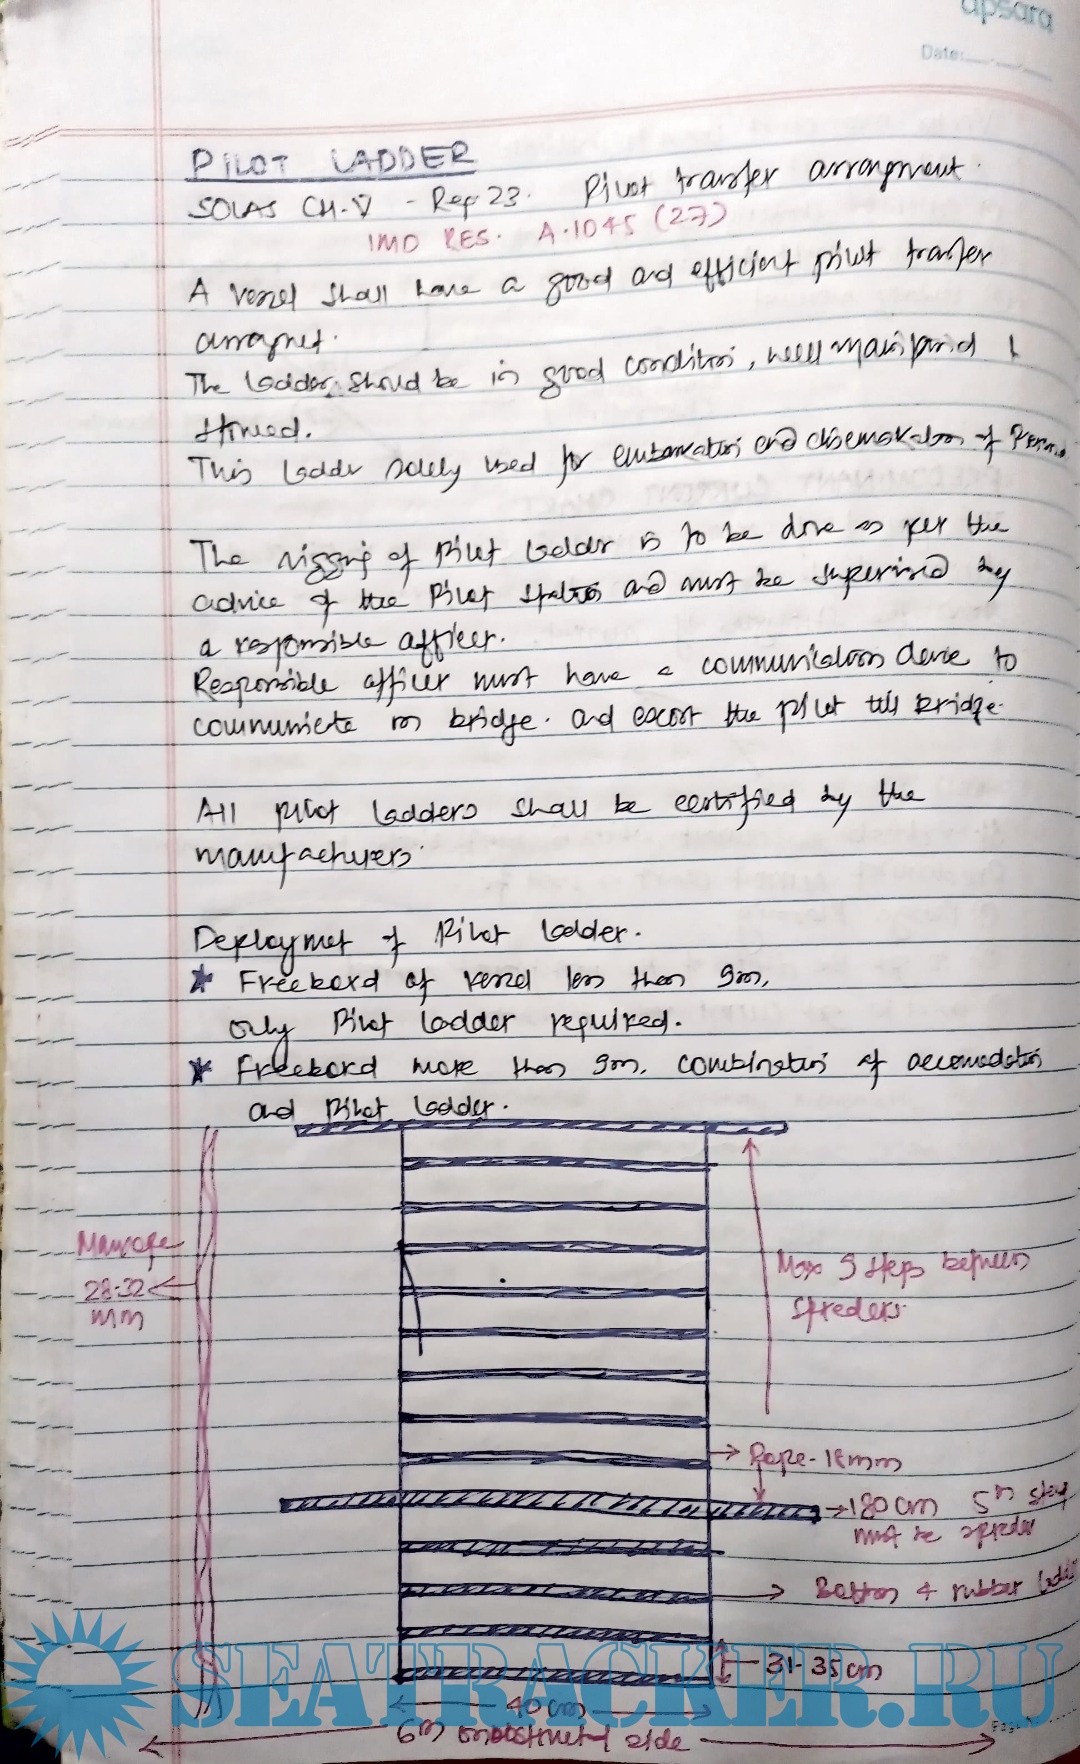 apsara
Date:
PILOT LADDER
SOLAS CH-V - Reg 23. Pilot transfer arrangment.
IMO RES. A.1045 (27)
A vessel shall have a good and efficient pilot transfer
arragnet.
The Ladder should be in good condition, well maintained &
stowed.
This Ladder solely used for embarkation and disembarkation of Person
The rigging of Pilot ladder is to be done as per the
advice of the Pilot station and must be supervised by
a responsible officer.
Responsible officer must have a communication device to
communicate on bridge. and escort the pilot till bridge.
All pilot ladders shall be certified by the
manufacturers.
Deploymet of Pilot ladder.
★ Freebord of vessel less than 9m,
only Pilot ladder required.
★ Freebord more than 9m, combination of accomodation
and Pilot ladder.
Manrope
28-32
mm
Max 9 steps between
spreders
Rope-18mm
180 cm 5th step
must be spreder
Bottom 4 rubber ladder
31-35cm
40 cm
6m unobstructed side
Page
SEATRACKER.RU